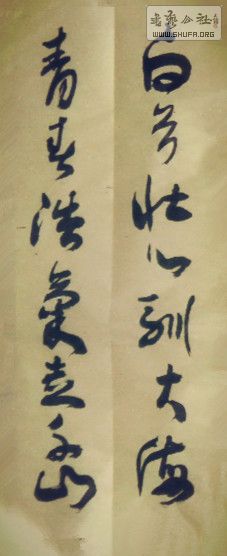 白首壮心驯大海
青春浩气走千山
書藝公社
WWW.SHUFA.ORG